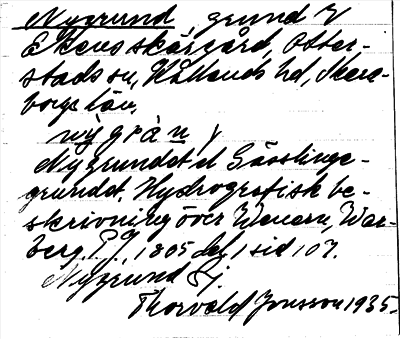 Nygrund, grund V
Ekens skärgård, Otter-
stads sn, Kållands hd, Skara-
borgs län.
nỳ grà n,
Nygrundet el Gäslinge-
grundet. Hydrografisk be-
skrivning över Wenern, War-
berg, 1805 del 1 sid 107.
Nygrund Gj.
Thorvald Jonsson 1935.